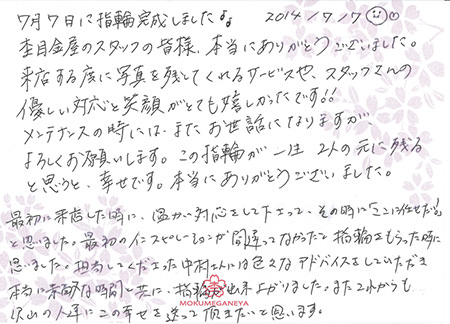 7月7日に指輪完成しました♪♪ 2014/7/7
杢目金屋のスタッフの皆様、本当にありがとうございました。
来店する度に写真を残してくれるサービスや、スタッフさんの
優しい対応と笑顔がとても嬉しかったです!!
メンテナンスの時には、またお世話になりますが、
よろしくお願いします。この指輪が一生 2人の元に残る
と思うと、幸せです。本当にありがとうございました。
最初に来店した時に、温かい対応をして下さって、その時に「ここに任せたい!」
と思いました。最初のインスピレーションが間違ってなかったと指輪をもらった時に
思いました。担当してくださった中村さんには色々なアドバイスをしていただき
本当に素敵な時間と共に、指輪が出来上がりました。またこれからも
沢山の人達にこの幸せを送って頂きたいと思います。
MOKUMEGANEYA